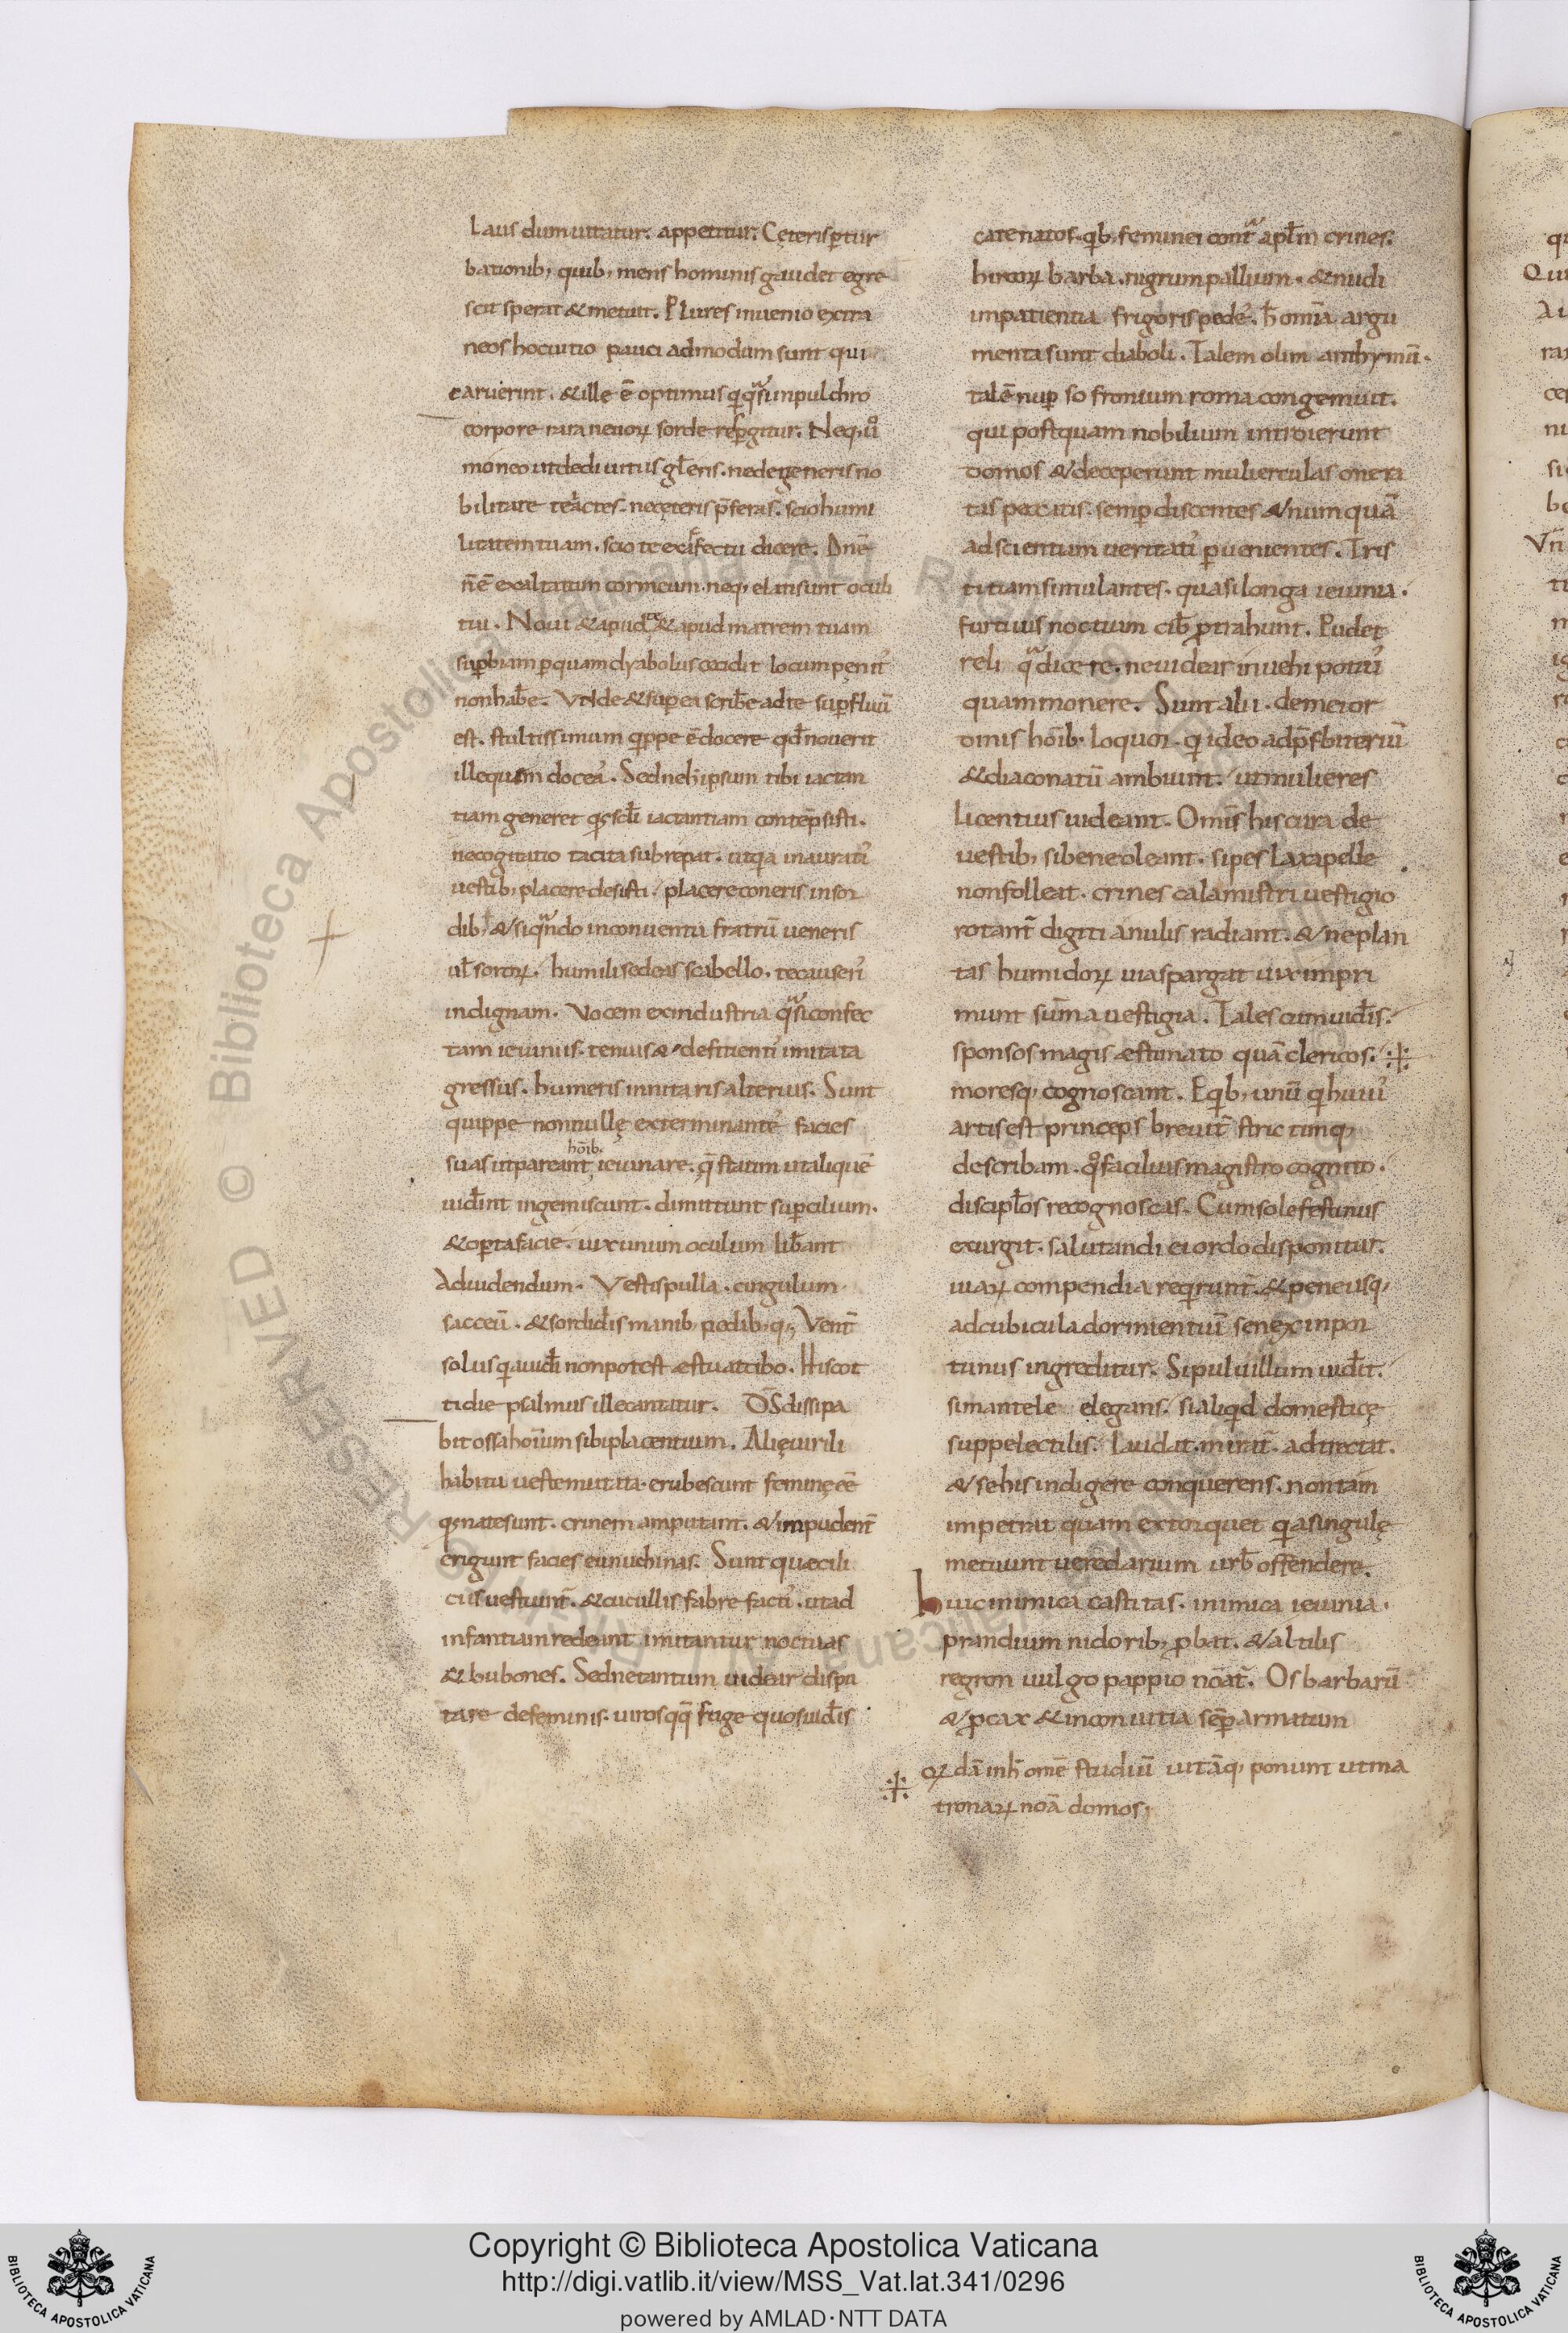 Laus dum uitatur. appetitur. Cęteris ꝑtur
bationib; quib; mens hominis gaudet egre
scit sperat & metuit. Plures inuenio extra
neos hoc uitio pauci admodum sunt qui
caruerint. & ille ē optimus qui q̃si in pulchro
corpore rara neuoꝝ sorde resꝑgitur. Neq; ů
moneo ut dediuitiis gl̄eris. ne degeneris no
bilitate te iactes. ne cęteris p̄feras. scio humi
litatem tuam. scio te ex affectu dicere. Dn̄e
n̄ ē exaltatum cor meum. neq; elati sunt oculi
tui. Noui & apud te & apud matrem tuam
suꝑbiam ꝑ quam dyabolus cecidit locum penit᾽
non hab̄e. Vnde & suꝑ ea scrib̄e ad te suꝑfluū
est. stultissimum q̄ppe ē docere qđ nouerit
ille quem doceas. Sed ne h̄ ipsum tibi iactan
tiam generet qđ scl̄i iactantiam contēpsisti.
ne cogitatio tacita subrepat. ut quia in auratis
uestib; placere desisti. placere coneris in sor
dib; & si q̃ndo in conuentu fratrū ueneris
uł sororꝝ. humili sedeas scabello. te causeris
indignam. Vocem ex industria q̃si confec
tam ieiuniis. tenuis & deficientis imitata
gressus. humeris innitaris alterius. Sunt
quippe nonnullę exterminantes facies
hōib.
suas ut pareant ieiunare. quę statim ut aliquē
uid̄int ingemiscunt. dimittunt suꝑcilium.
& oꝑta facie. uix unum oculum lib̄ant
Ad uidendum. Vestis pulla. cingulum
sacceū. & sordidis manib; pedib; q; Vent̄
solus quia uid̄i non potest æstuat cibo. His cot
tidie psalmus ille cantatur. D̄S dissipa
bit ossa hoīum sibi placentium. Alię uirili
habitu ueste mutata. erubescunt feminę ēē
qđ natę sunt. crinem amputant. & impudent̄
erigunt facies eunuchinas. Sunt quæ cili
ciis uestiunt̄. & cucullis fabre factis. ut ad
infantiam redeant imitantur noctuas
& bubones. Sed ne tantum uidear dispu
tare de feminis. uiros qq̄ fuge quos uid̄is
catenatos. qib; feminei contra apl̄m crines.
hircoꝝ barba. nigrum pallium. & nudi
in patientia frigoris pedes. h̄ omīa argu
menta sunt diaboli. Talem olim anthymū.
talē nuꝑ sofronium roma congemuit.
qui postquam nobilium introierunt
domos & deceperunt mulierculas onera
tas peccatis. semꝑ discentes & numquā
ad scientiam ueritatis ꝑuenientes. Tris
titiam simulantes. quasi longa ieiunia.
furtiuis noctium cib̄ ꝓtrahunt. Pudet
reliqua dicere. ne uidear inuehi potius
quam monere. Sunt alii. de mei or
dinis hōib; loquor. qi ideo ad p̄sbiteriū
& diaconatū ambiunt. ut mulieres
licentius uideant. Omīs his cura de
uestib; si bene oleant. si pes laxa pelle
non folleat. crines calamistri uestigio
rotant̄ digiti anulis radiant. & ne plan
tas humidoꝝ uia spargat uix impri
munt sūma uestigia. Tales cum uid̄is.
sponsos magis æstimato quā clericos.
moresq; cognoscant. E qib; unū qi huius
artis est princeps breuit̄ strictimq;
describam. q̊ facilius magistro cognito.
discipl̄os recognoscas. Cum sole festinus
exurgit. salutandi ei ordo disponitur.
uiaꝝ compendia reqirunt̄. & pene usq;
ad cubicula dormientiū senex inpor
tunus ingreditur. Si puluillum uid̄it.
si mantele elegans. si aliqid domesticę
suppelectilis. laudat. mirat̄. adtrectat.
& se his indigere conquerens. non tam
impetrat quam extorquet qia singulę
metuunt ueredarium urb̄ offendere.
huic inimica castitas. inimica ieiunia.
prandium nidorib; ꝓbat. & altilis
regron uulgo pappio nōat̄. Os barbarū
& ꝓcax & in conuitia sēꝑ armatum
oꝝdā in h̄ omē studiū uitāq; ponunt ut ma
tronaꝝ noā domos;
Copyright © Biblioteca Apostolica Vaticana
http://digi.vatlib.it/view/MSS_Vat.lat.341/0296
powered by AMLAD·NTT DATA
BIBLIOTECA APOSTOLICA VATICANA
BIBLIOTECA APOSTOLICA VATICANA